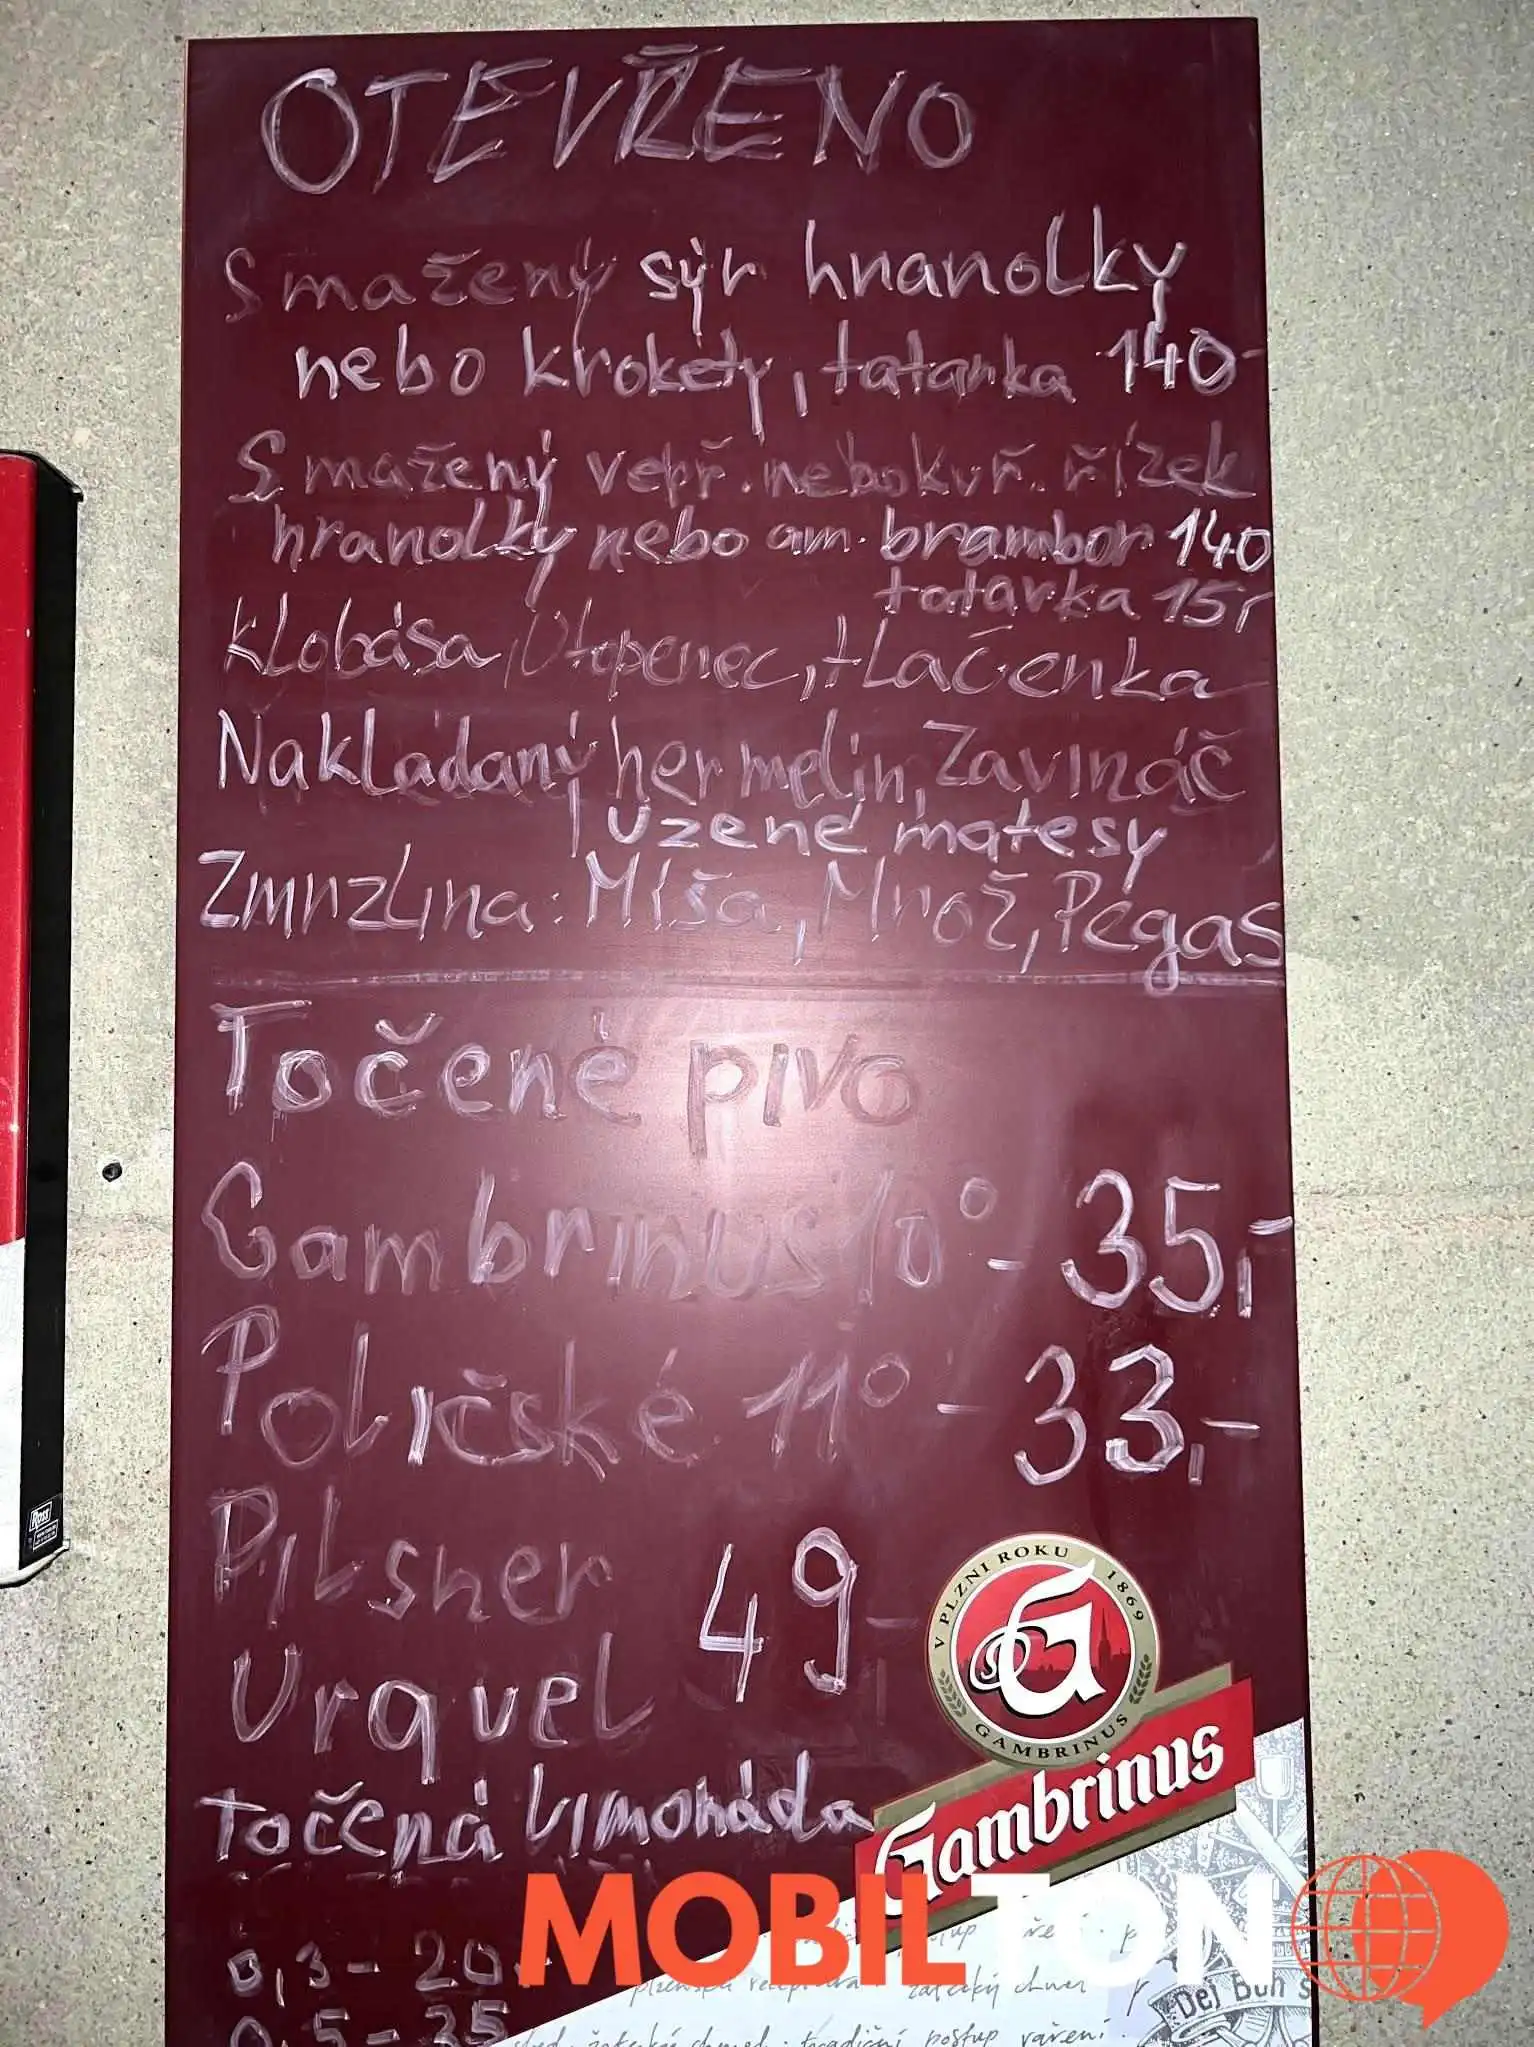 OTEVŘENO
Smažený sýr hranolky
nebo krokety, tatarka 140-
Smažený vepř. nebo kuř. řízek
hranolky nebo am. brambor 140
tatarka 15,-
Klobása, Utopenec, tlačenka
Nakládaný hermelín, Zavináč
, Uzené matesy
Zmrzlina: Míša, Mrož, Pegas
Točené pivo
Gambrinus 10° - 35,-
Poličské 11° - 33,-
Pilsner
Urquel 49,-
V PLZNI ROKU 1869
G
GAMBRINUS
Gambrinus
Točená limonáda
MOBILTON
0,3 - 20,-
0,5 - 35
žatecký chmel
Dej Bůh š
žatecký chmel · tradiční postup vaření
Ross